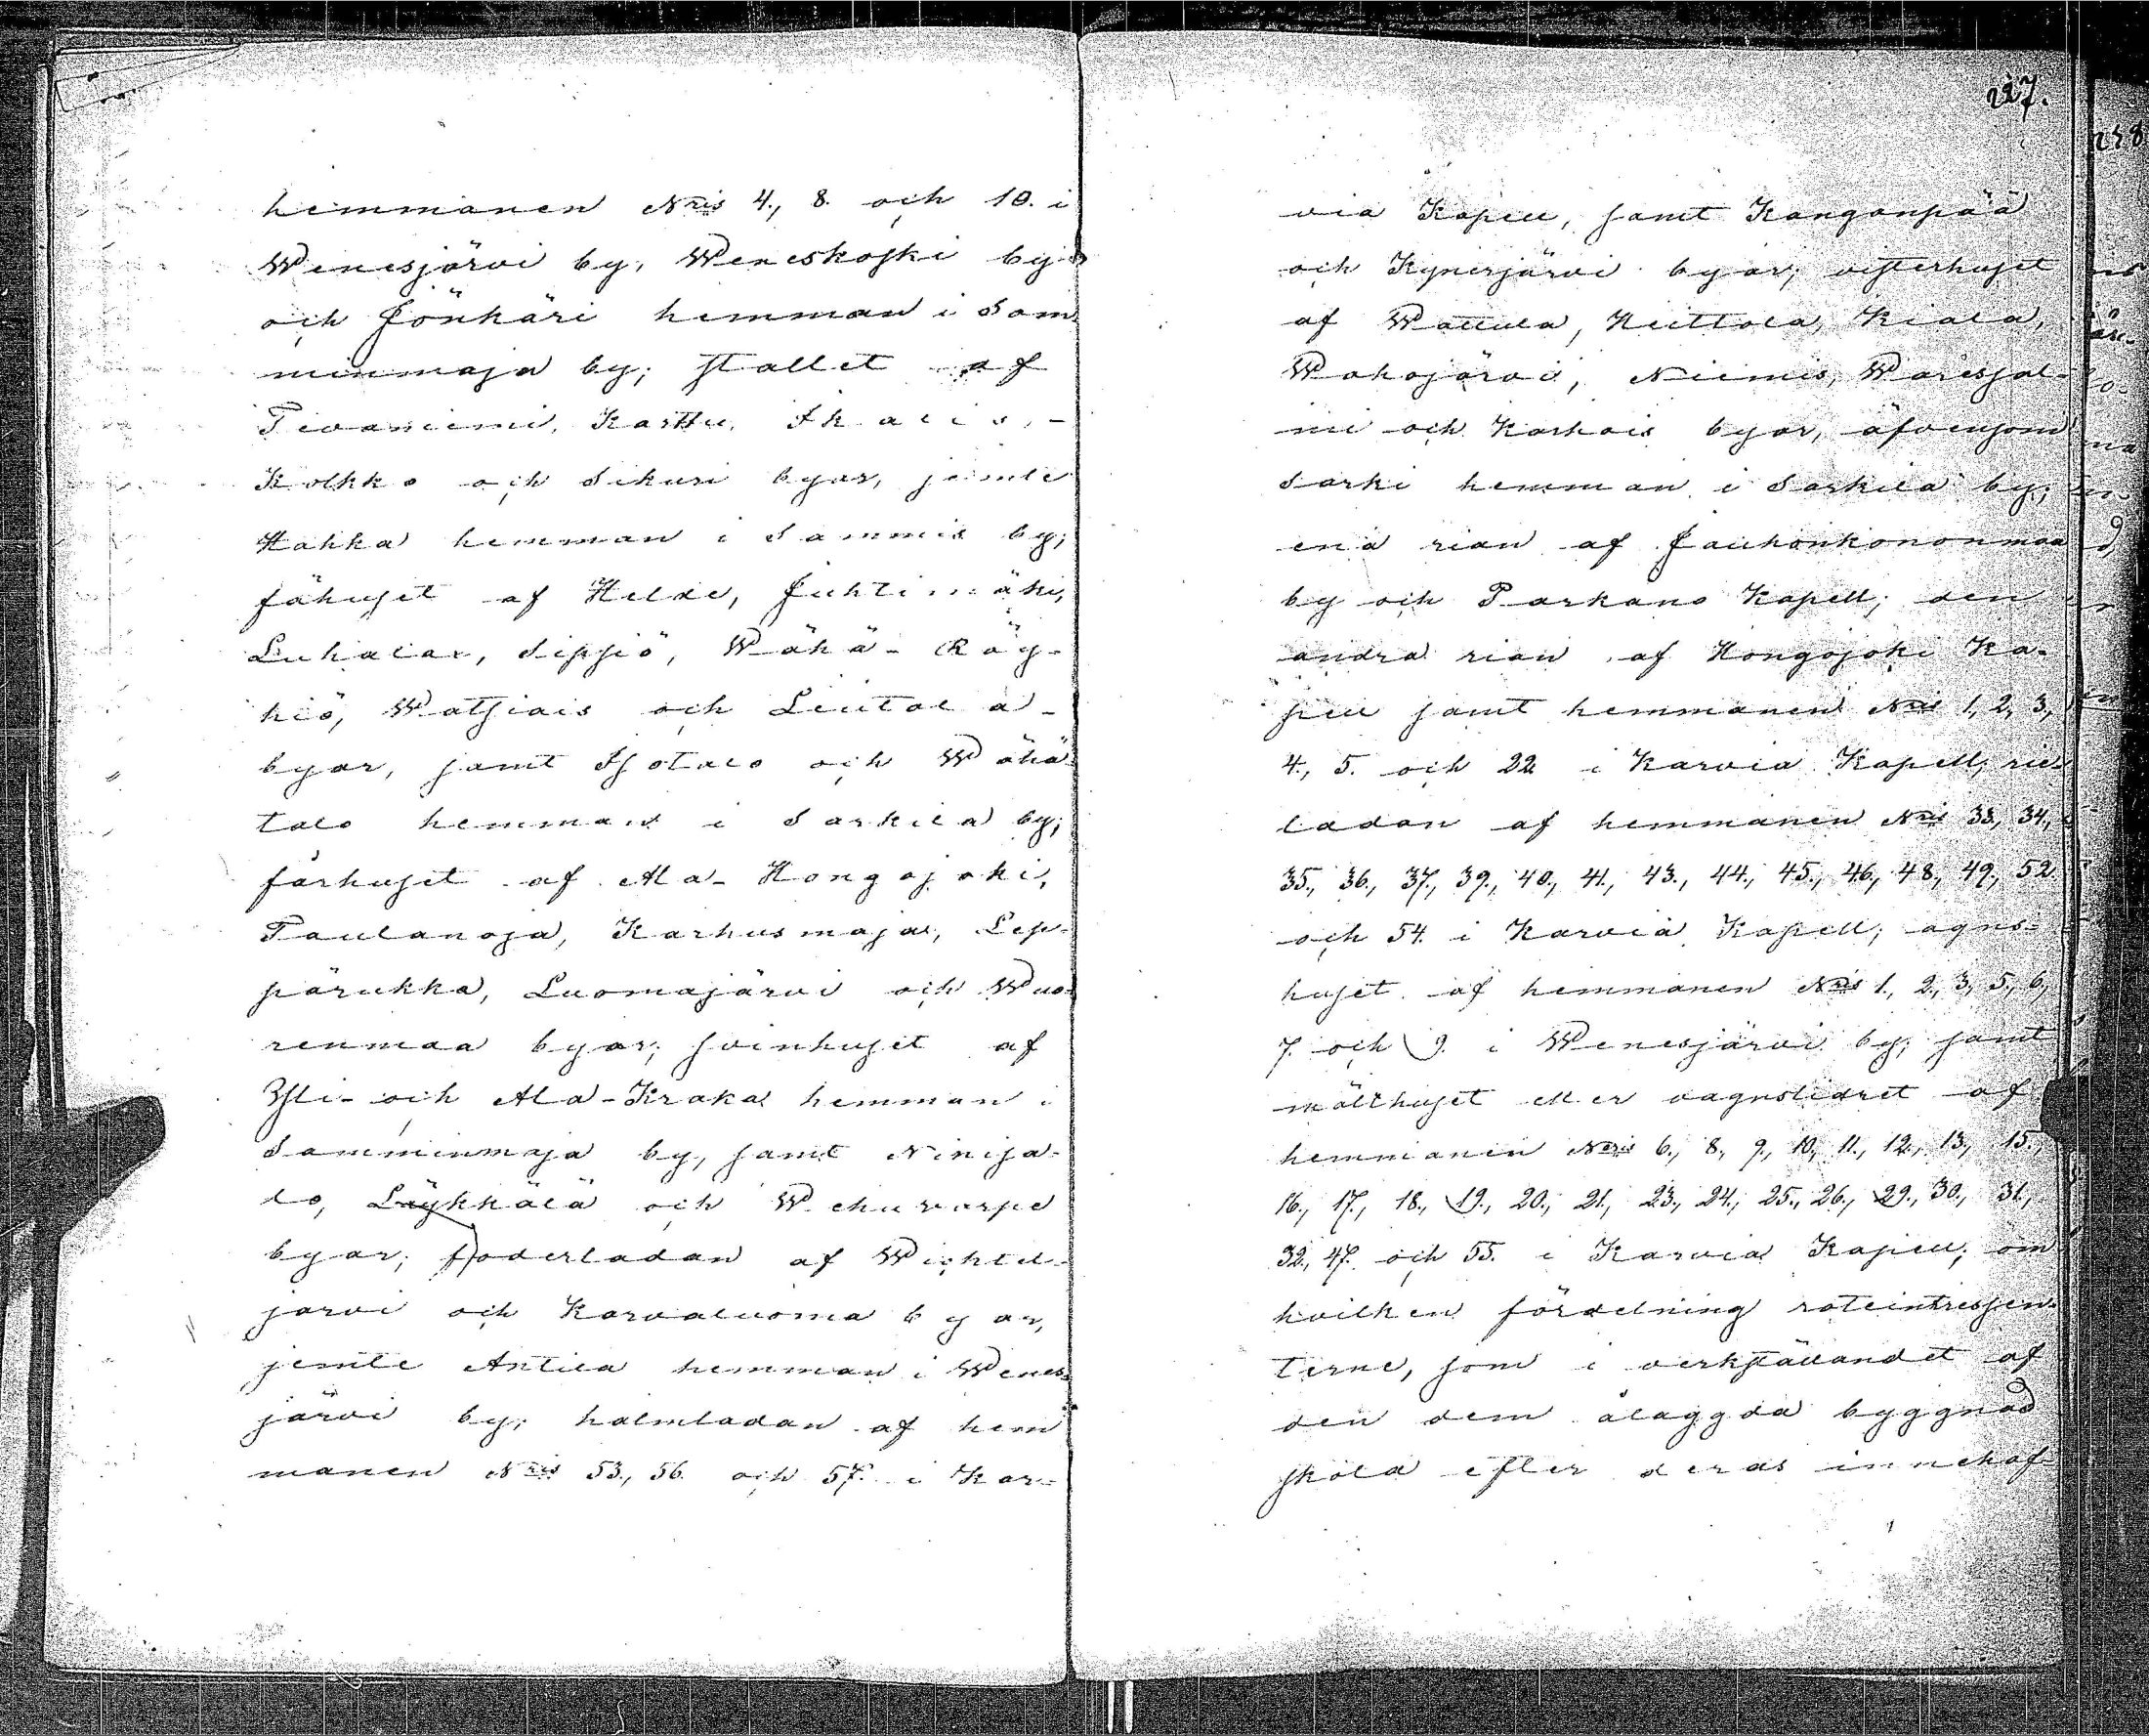 hemmanen Nris 4., 8. och 10. i
Wenesjärvi by, Weneskoski by
och Jönkäri hemman i Som
minmaja by; stallet af
Tevaniemi, Karttu, Ikalis,-
Kolkko och Sikuri byar, jemte
Hakka hemman i Sammis by;
fähuset af Helde, Juhtimäki,
Luhalax, Sipsiö, Wähä-Röy-
hiö, Watsiais och Leutola-
byar, samt Isotalo och Wähä
talo hemman i Sarkila by;
fårhuset af Ala-Hongojoki,
Paulanoja, Karhusmaja, Lep-
pärukka, Luomajärvi och Wuo-
renmaa byar; svinhuset af
Yli- och Ala-Kraka hemman i
Samminmaja by, samt Ninisa-
lo, Löykkälä och Wehuvarpe
byar; foderladan af Wichtel-
jarvi och Karvaluoma byar,
jemte Antila hemman i Wenes-
järvi by; halmladan af hem
manen Nris 53., 56. och 57. i Kar-
227.
228
via Kapell, samt Kanganpää
och Kynesjärvi byar; visterhuset
af Wallula, Heittola, Kiala,
Wahojärvi, Niemis, Waresjal-
mi och Karhois byar, äfvensom
Sarki hemman i Sarkila by;
ena rian af Jauhonkononmaa
by och Parkano Kapell; den
andra rian af Hongojoki Ka-
pell samt hemmanen Nris 1., 2., 3.,
4., 5. och 22 i Karvia Kapell; rie-
ladan af hemmanen Nris 33., 34.,
35., 36., 37., 39., 40., 41., 43., 44., 45., 46., 48., 49., 52
och 54. i Karvia Kapell; agns-
huset af hemmanen Nris 1., 2., 3., 5., 6.,
7. och 9. i Wenesjärvi by; samt
mälthuset eller vagnslidret af
hemmanen Nris 6., 8., 9., 10., 11., 12., 13., 15.,
16., 17., 18., 19., 20., 21., 23., 24., 25., 26., 29., 30., 31.,
32., 47. och 55. i Karvia Kapell; om
hvilken fördelning roteintressen-
terne, som i verkställandet af
den dem ålaggda byggnad
skola efter deras innehaf-